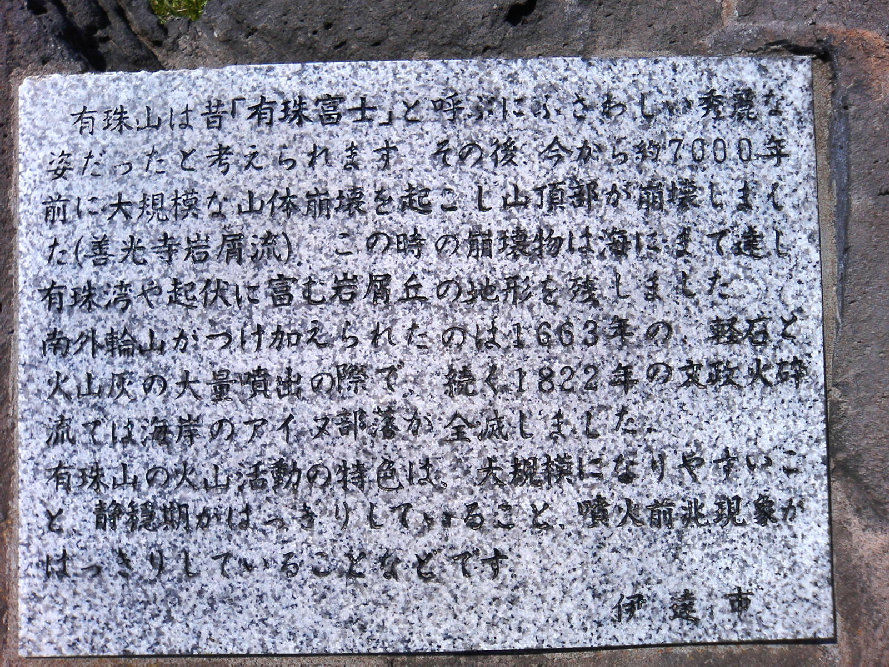 有珠山は昔「有珠富士」と呼ぶにふさわしい秀麗な
姿だったと考えられます。その後、今から約7000年
前に大規模な山体崩壊を起こし山頂部が崩壊しまし
た(善光寺岩屑流)。この時の崩壊物は海にまで達し
有珠湾や起伏に富む岩屑丘の地形を残しました。
南外輪山がつけ加えられたのは1663年の、軽石と
火山灰の大量噴出の際で、続く1822年の文政火砕
流では海岸のアイヌ部落が全滅しました。
有珠山の火山活動の特色は、大規模になりやすいこ
と、静穏期がはっきりしていること、噴火前兆現象が
はっきりしていることなどです。
伊達市